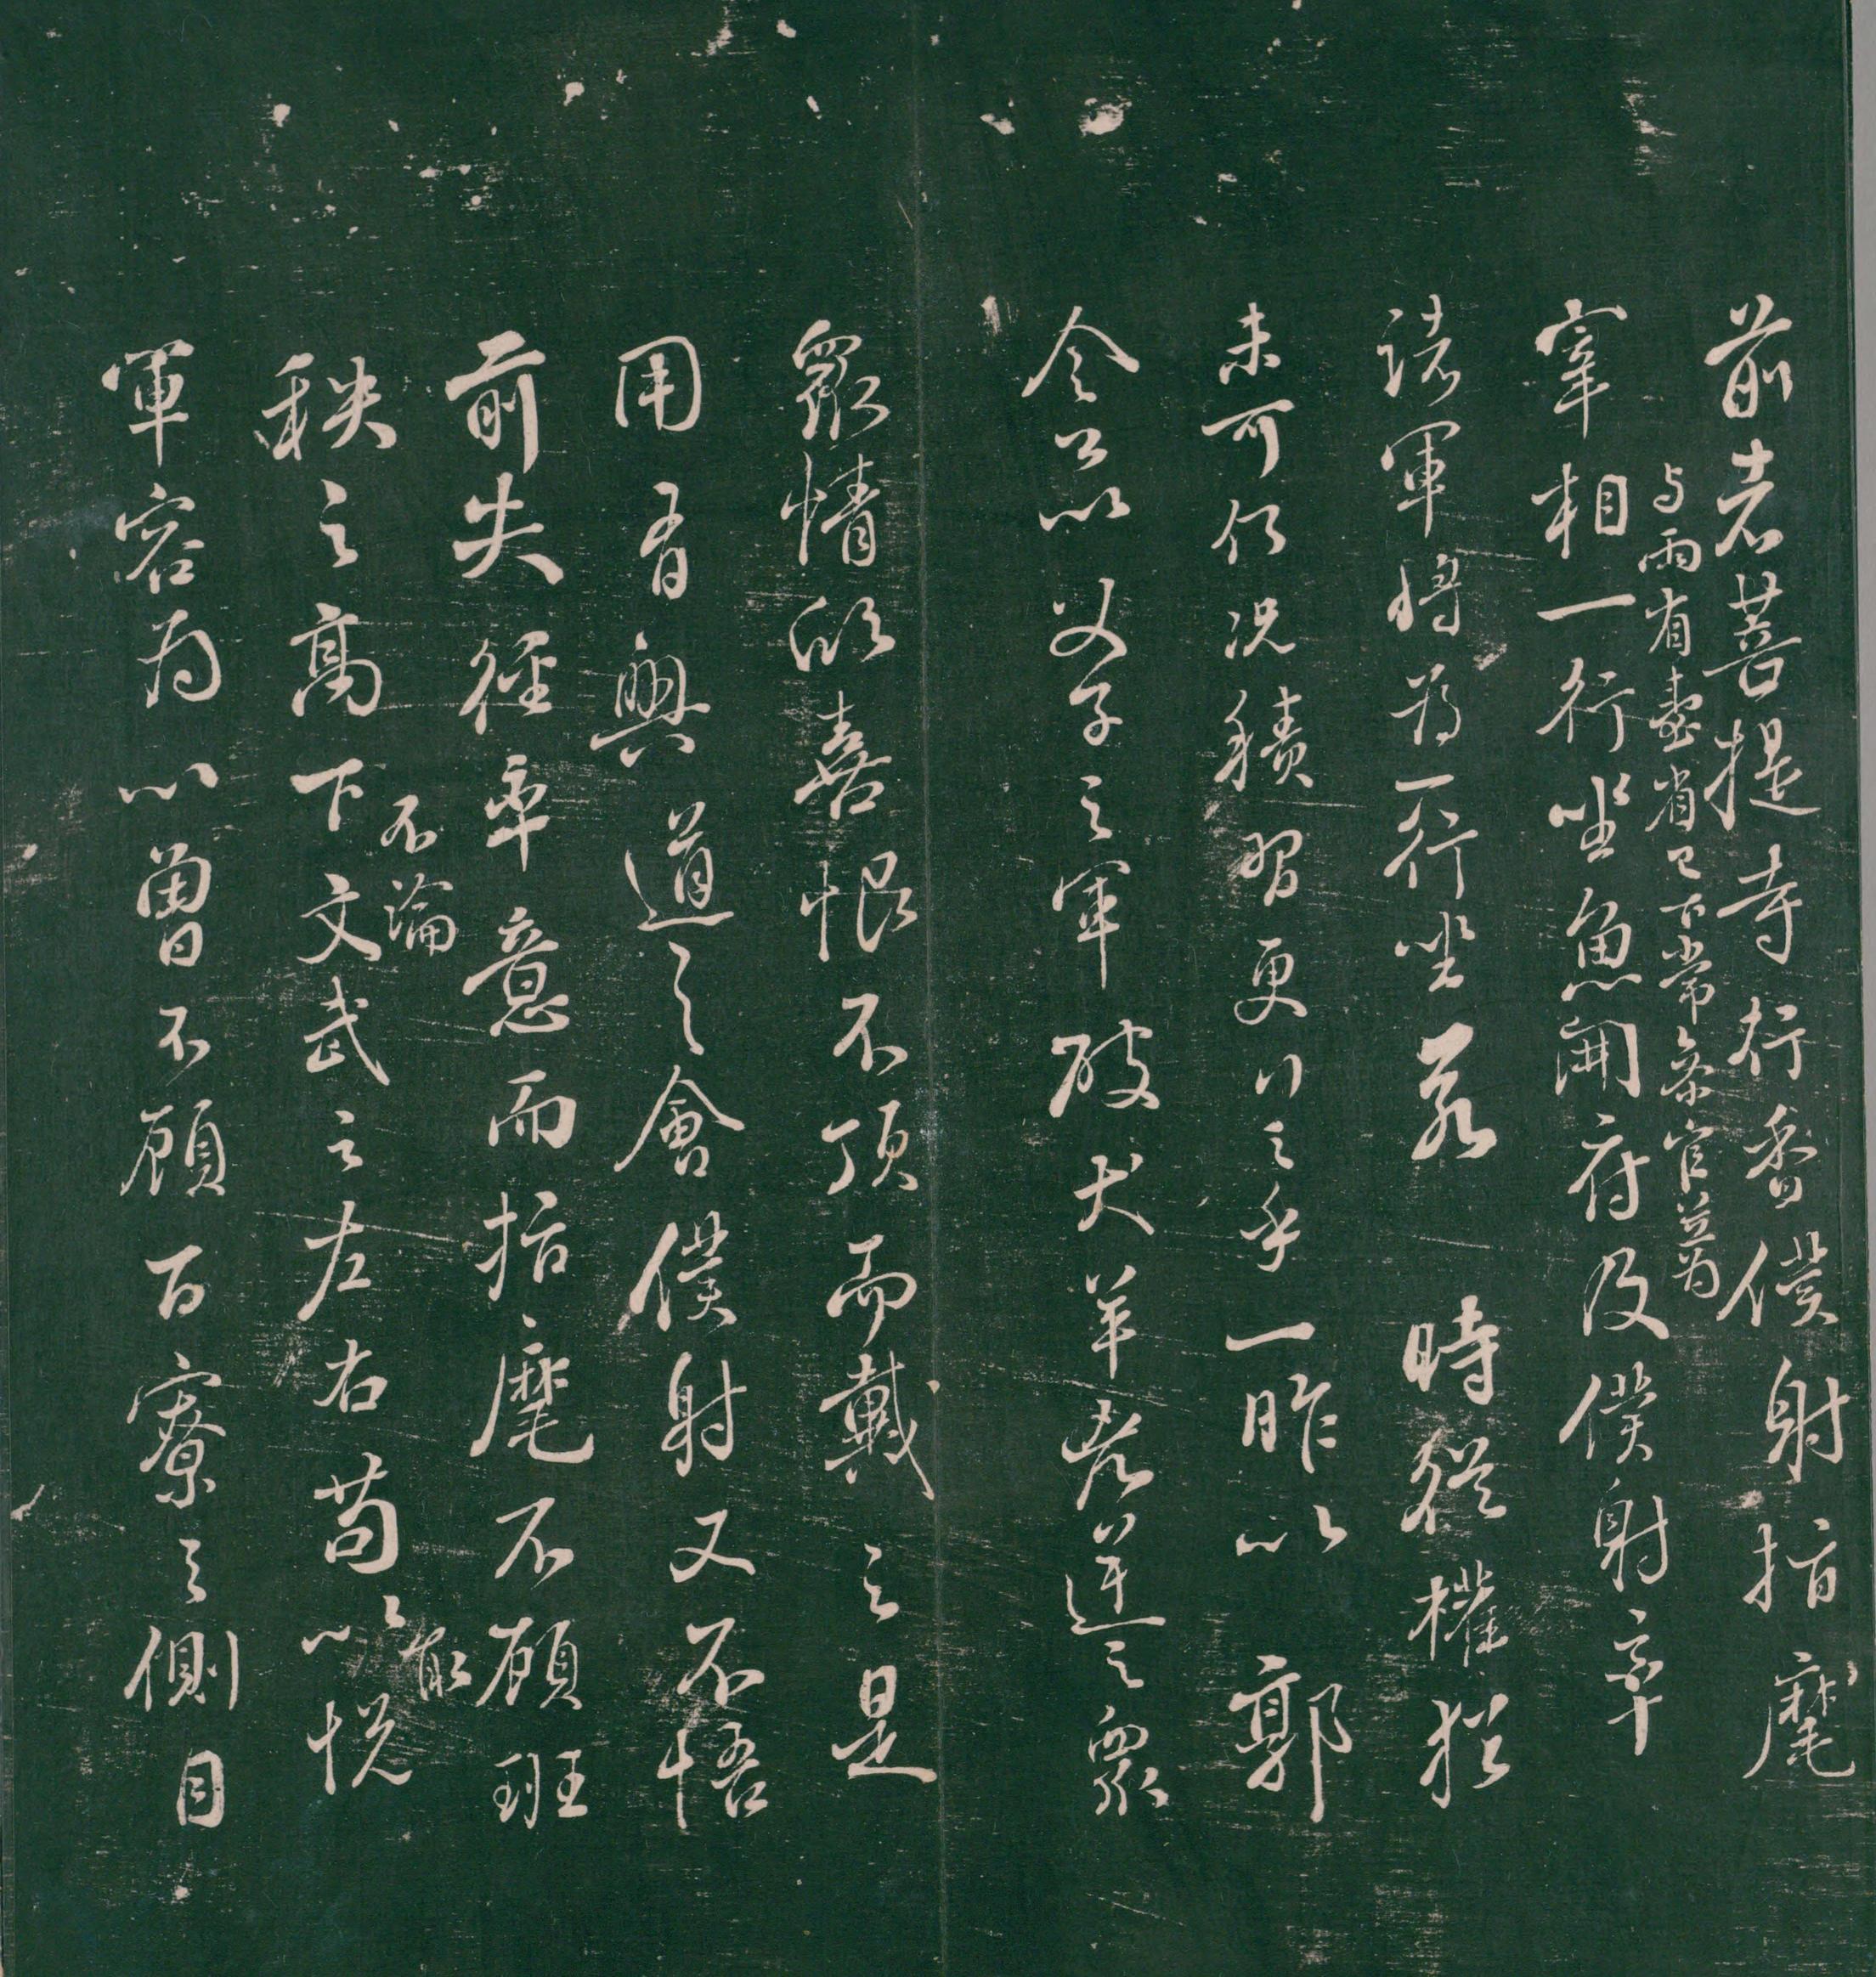 前者菩提寺行香僕射指麾
与兩省臺省已下常參官並為
宰相一行坐魚開府及僕射率
諸軍將為一行坐若時從權猶
未可何況積習更行之乎一昨以郭
令公以父子之軍破犬羊凶逆之眾
眾情欣喜恨不頂而戴之是
用有興道之會僕射又不悟
前失徑率意而指麾不顧班
不論取
秩之高下文武之左右苟以悅
軍容為心曾不顧百寮之側目